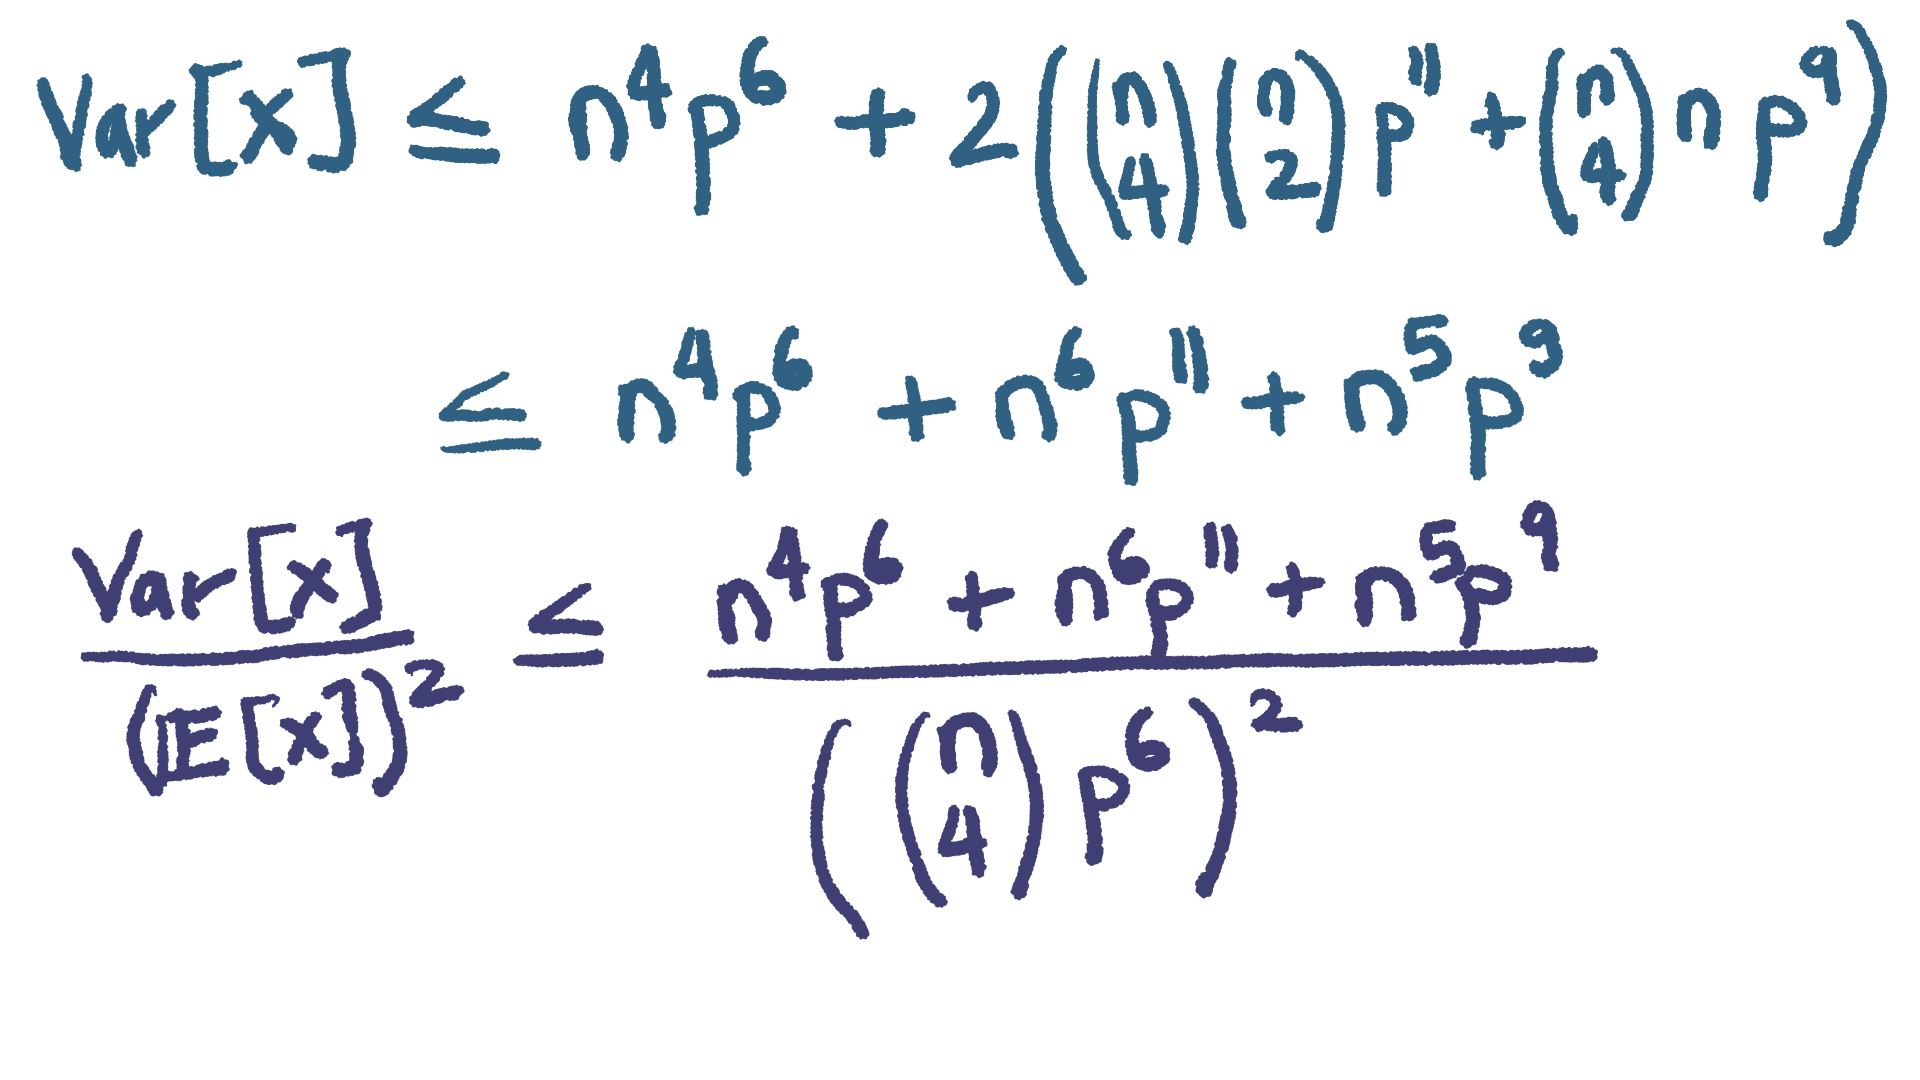 Var[x] ≤ n⁴p⁶ + 2((n 4)(n 2)p¹¹ + (n 4) n p⁹)
≤ n⁴p⁶ + n⁶p¹¹ + n⁵p⁹
Var[x] / (𝔼[x])² ≤ (n⁴p⁶ + n⁶p¹¹ + n⁵p⁹) / ((n 4) p⁶)²